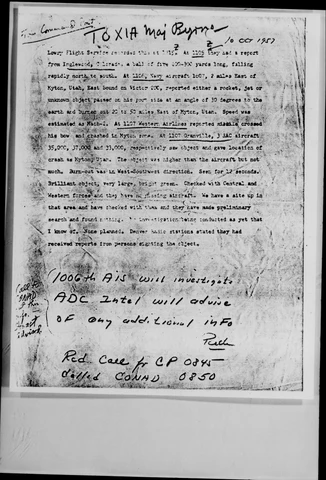 TO XIA Maj Byrne
10 OCT 1957
Lowry Flight Service recorded this at 1115Z. At 1105Z they had a report
from Inglewood, Colorado, a ball of fire 400-900 yards long, falling
rapidly north to south. At 1108, Navy aircraft 1007, 2 miles East of
Myton, Utah, East bound on Victor 200, reported either a rocket, jet or
unknown object passed on his port side at an angle of 30 degrees to the
earth and burned out 20 to 50 miles East of Myton, Utah. Speed was
estimated as Mach-2. At 1107 Western Airlines reported missile crossed
his bow and crashed in Myton area. At 1107 Granville, 3 AAC aircraft
35,000, 37,000 and 31,000, respectively saw object and gave location of
crash as Myton, Utah. The object was higher than the aircraft but not
much. Burn-out was in West-Southwest direction. Seen for 12 seconds.
Brilliant object, very large, bright green. Checked with Central and
Western forces and they have no missing aircraft. We have a site up in
that area and have checked with them and they have made preliminary
search and found nothing. No investigation being conducted as yet that
I know of. None planned. Denver radio stations stated they had
received reports from persons sighting the object.
1006th AISS will investigate
ADC Intel will advise
of any additional info
Red Case for CP 0845
called CONAD 0850